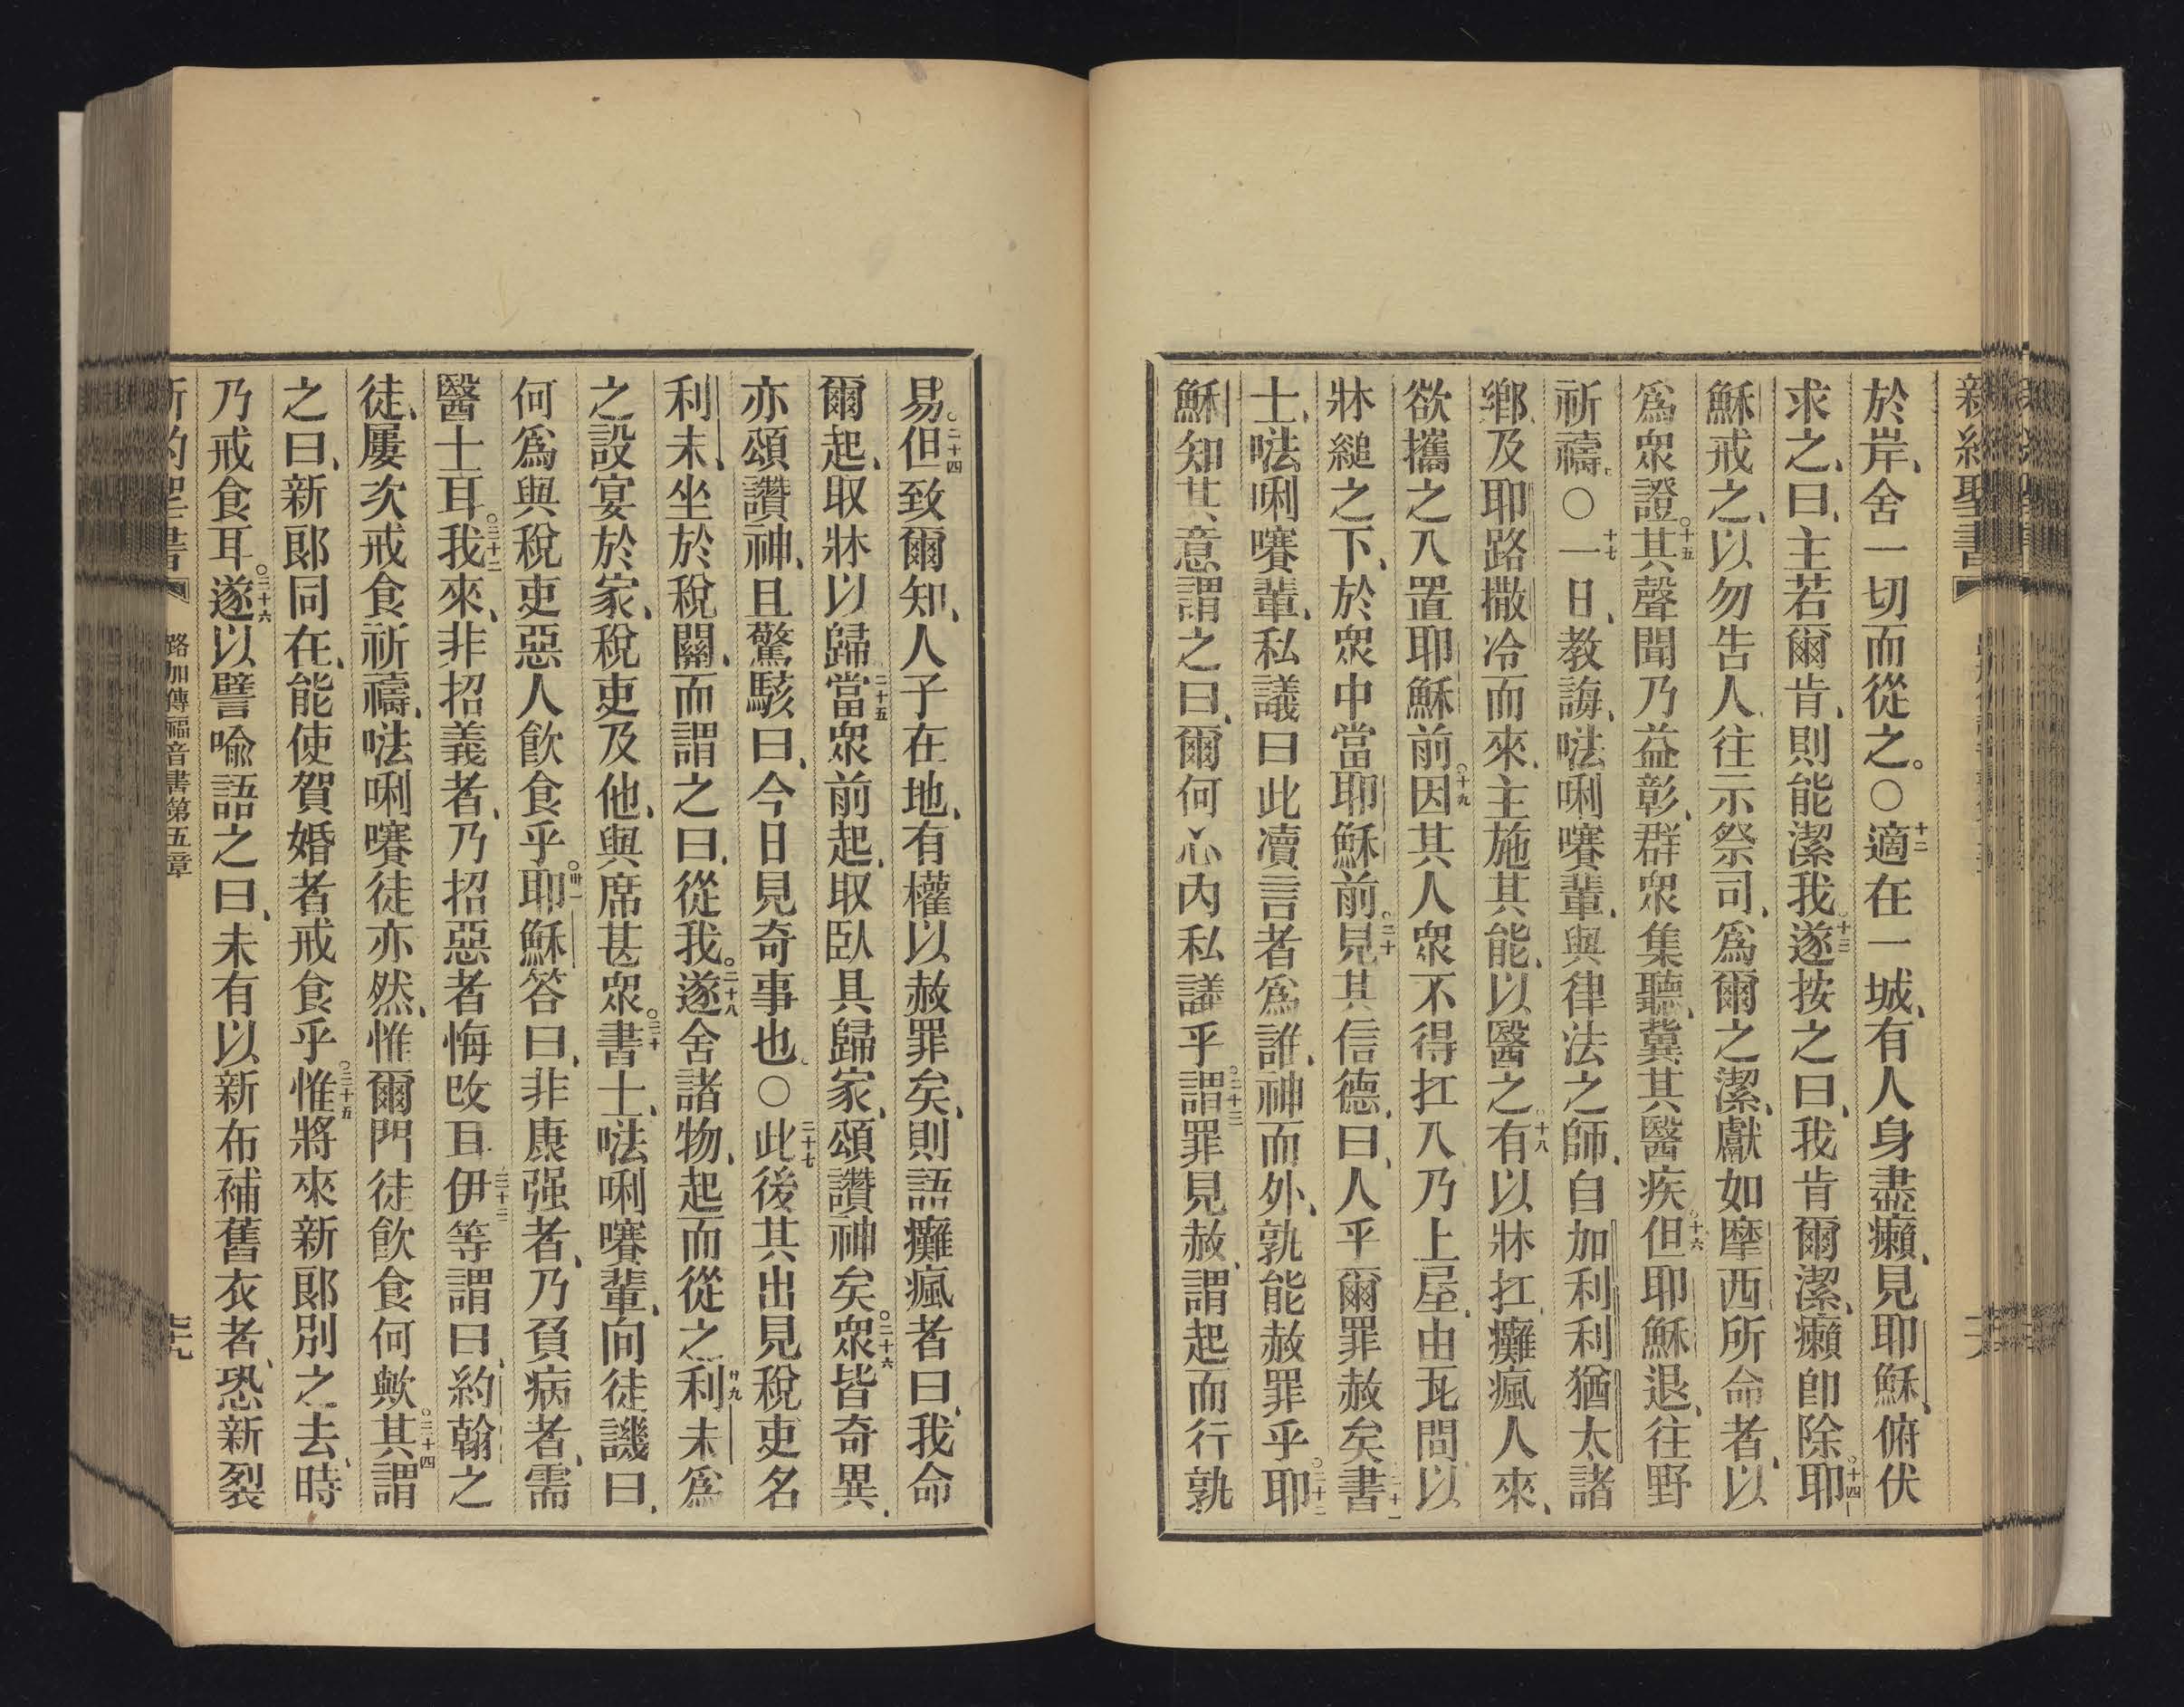 新約聖書
於岸、舍一切而從之。○十二適在一城、有人身盡癩、見耶穌、俯伏
求之、曰、主若爾肯、則能潔我。十三遂按之曰、我肯爾潔、癩卽除。十四耶
穌戒之、以勿告人、往示祭司、爲爾之潔、獻如摩西所命者、以
爲眾證。○十五其聲聞乃益彰、群眾集聽、冀其醫疾。十六但耶穌退、往野
祈禱。○十七一日、教誨、𠵽唎㘔輩、與律法之師、自加利利猶太諸
鄉、及耶路撒冷而來、主施其能、以醫之。十八有以牀扛癱瘋人來、
欲攜之入置耶穌前。○十九因其人眾不得扛入乃上屋、由瓦間以
牀縋之下、於眾中當耶穌前。○二十見其信德、曰、人乎爾罪赦矣。二十一書
士、𠵽唎㘔輩、私議曰此瀆言者爲誰、神而外、孰能赦罪乎。○二十二耶
穌知其意謂之曰、爾何心內私議乎。○二十三謂罪見赦、謂起而行孰
易。○二十四但致爾知、人子在地、有權以赦罪矣、則語癱瘋者曰、我命
爾起、取牀以歸。二十五當眾前起、取臥具歸家、頌讚神矣。○二十六眾皆奇異、
亦頌讚神、且驚駭曰、今日見奇事也。○二十七此後其出見稅吏名
利未、坐於稅關、而謂之曰、從我。○二十八遂舍諸物、起而從之。廿九利未爲
之設宴於家、稅吏及他、與席甚眾。○三十書士、𠵽唎㘔輩、向徒譏曰、
何爲與稅吏惡人飲食乎。○卅一耶穌答曰、非康强者、乃負病者、需
醫士耳。○三十二我來、非招義者、乃招惡者悔改耳。三十三伊等謂曰、約翰之
徒、屢次戒食祈禱、𠵽唎㘔徒亦然、惟爾門徒飲食何歟。○三十四其謂
之曰、新郎同在、能使賀婚者戒食乎。○三十五惟將來新郎別之去、時
乃戒食耳。○三十六遂以譬喻語之曰、未有以新布補舊衣者、恐新裂
新約聖書 路加傳福音書第五章